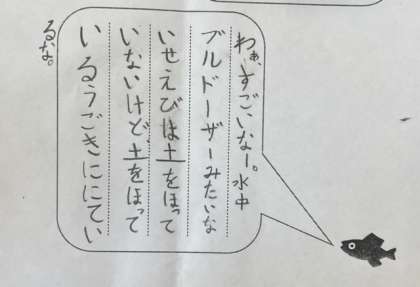 わぁ、すごいなー。水中
ブルドーザーみたいな
いせえびは土をほって
いないけど、土をほって
いるうごきににてい
るな。